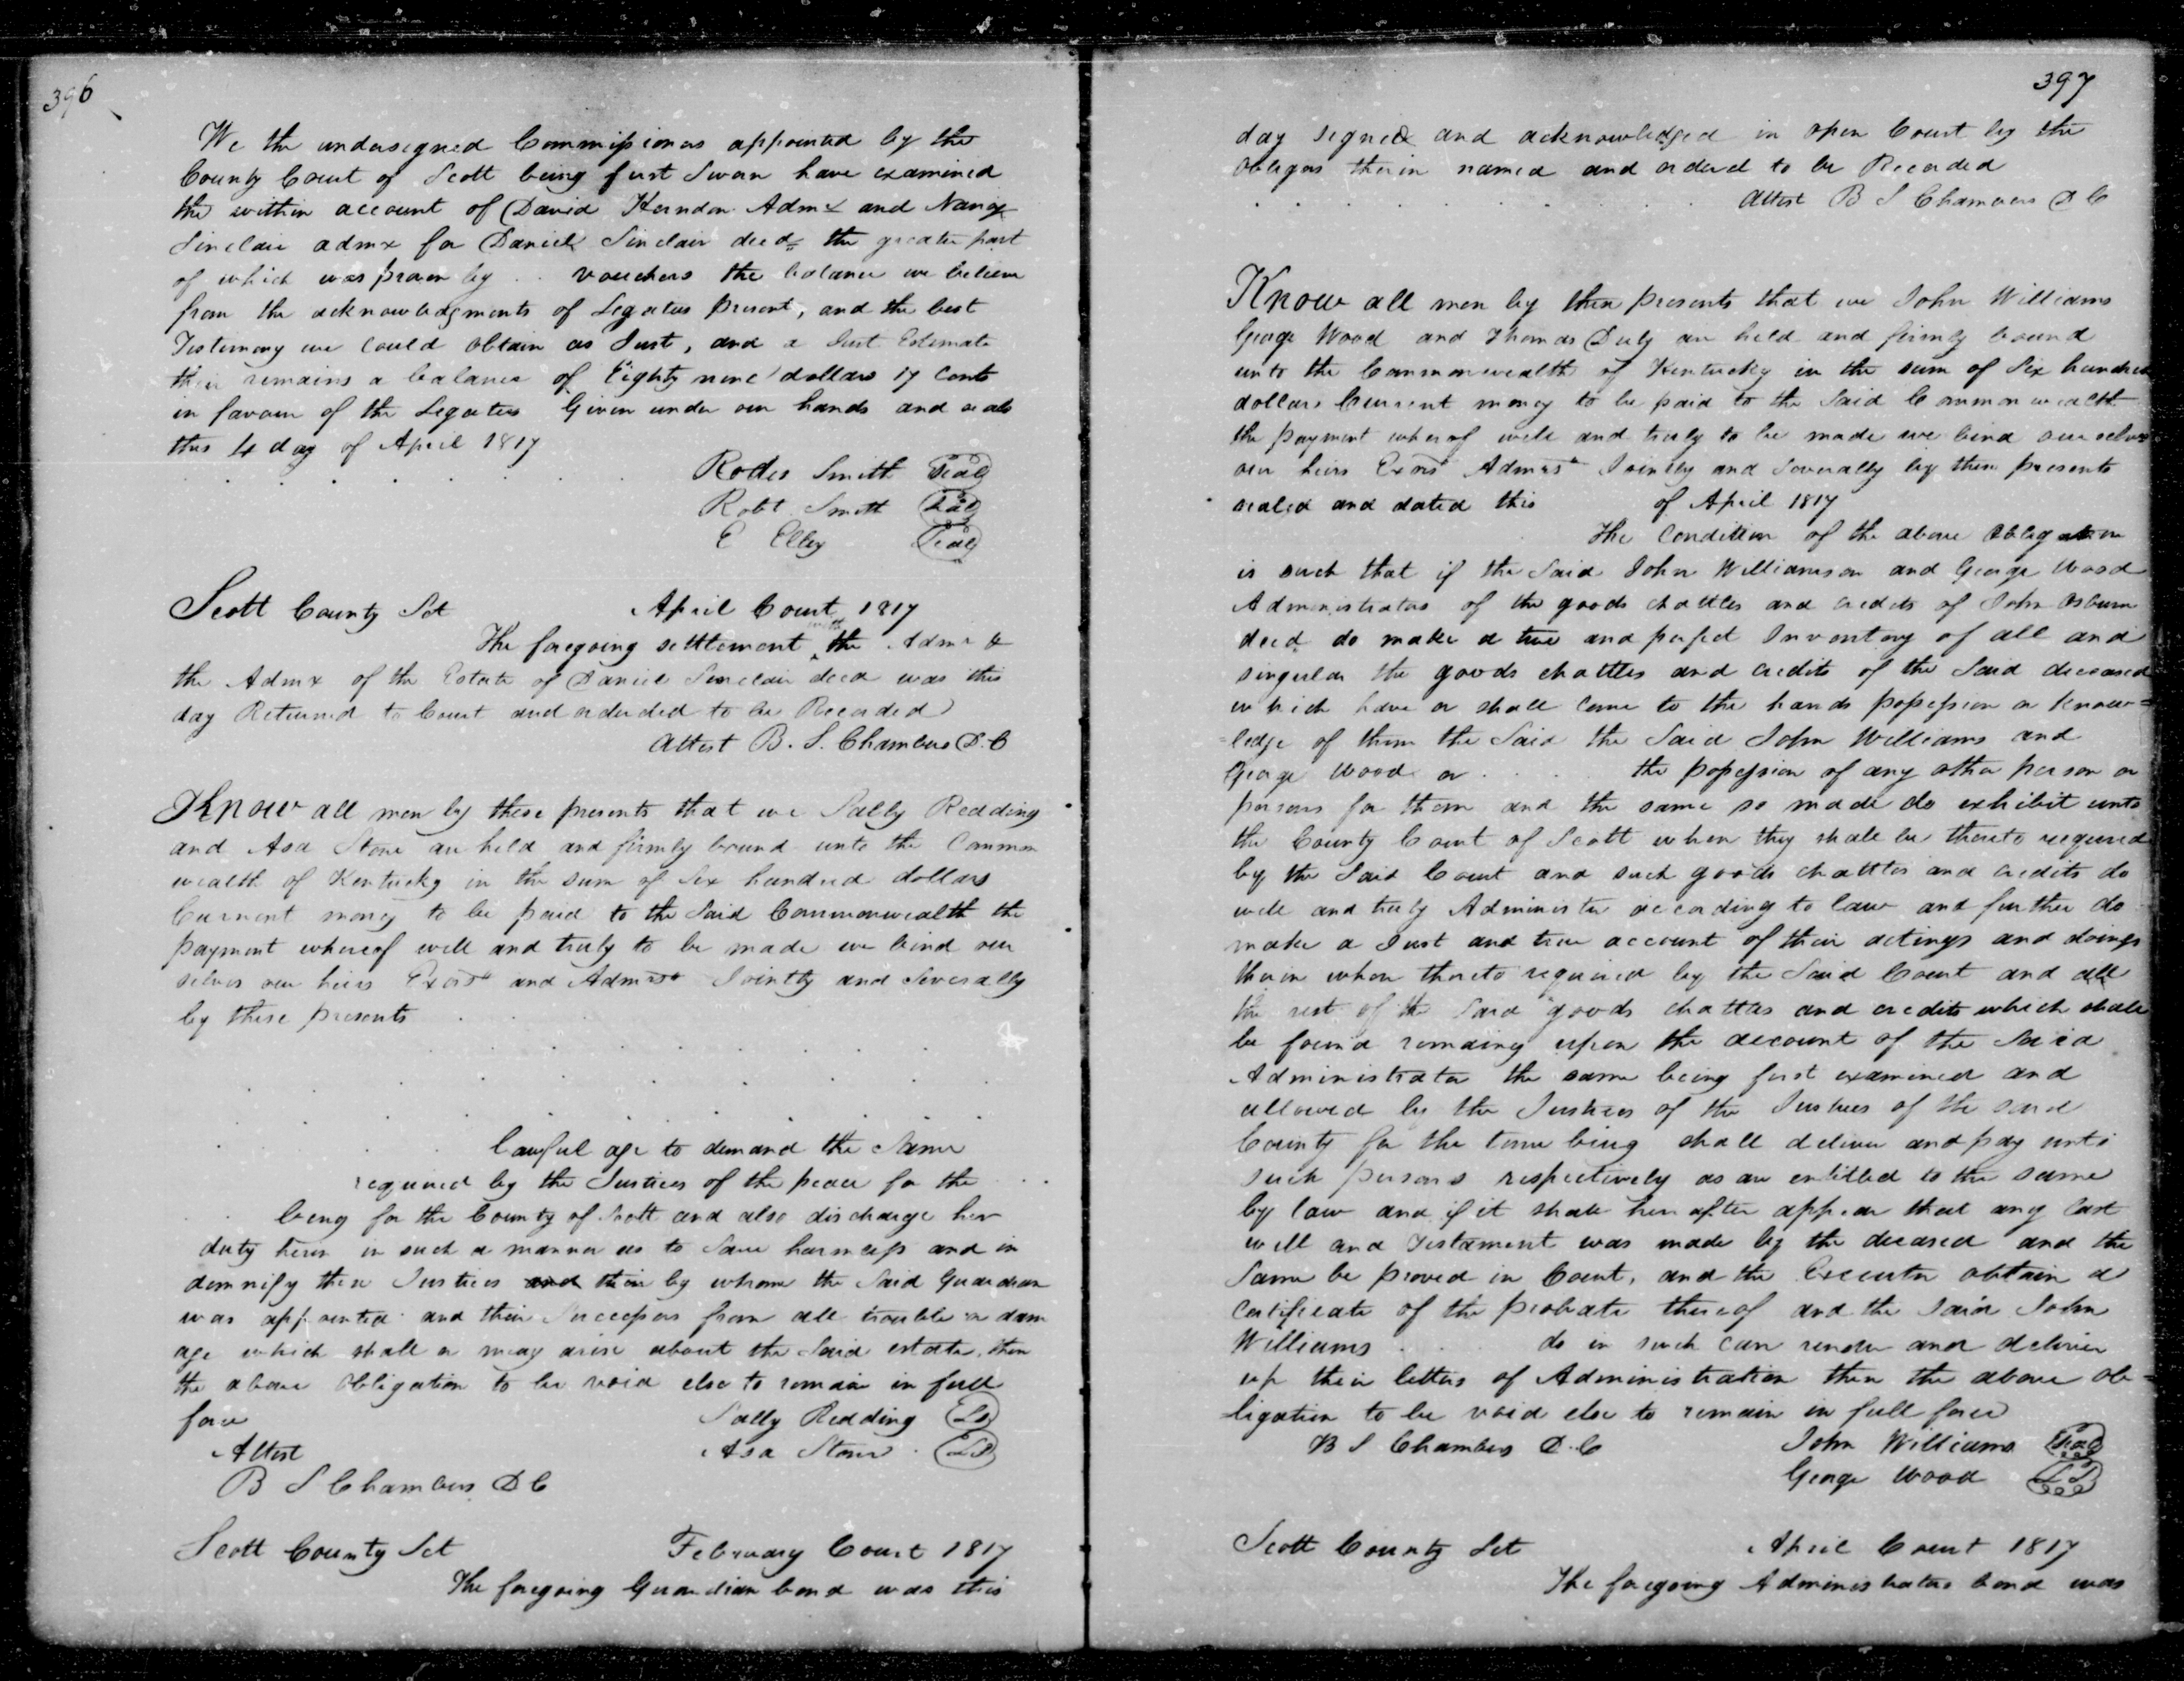 396
We the undersigned Commissioners appointed by the
County Court of Scott being first Sworn have examined
the within account of David Herndon Admr and Nancy
Sinclair admx for Daniel Sinclair decd the greater part
of which was proven by . . vouchers the balance we believe
from the acknowledgments of Legatees present, and the best
Testimony we could obtain as Just, and a Just Estimate
their remains a balance of Eighty nine dollars 17 Cents
in favour of the Legatees Given under our hands and seals
this 4 day of April 1817
Rodes Smith Seal
Robt Smith Seal
E Elley Seal
Scott County Sct April Court 1817
The foregoing settlement with the Admr &
the Admx of the Estate of Daniel Sinclair decd was this
day Returned to Court and ordered to be Recorded
Attest B. S. Chambers D. C
Know all men by these presents that we Sally Redding
and Asa Stone are held and firmly bound unto the Common
wealth of Kentucky in the sum of Six hundred dollars
Current money to be paid to the Said Commonwealth the
payment whereof well and truly to be made we bind our
selves our heirs Exors and Admrs Jointly and Severally
by these presents
lawful age to demand the Same
required by the Justices of the peace for the
being for the County of Scott and also discharge her
duty herin in such a manner as to Save harmless and in
demnify these Justices and their by whom the Said Guardian
was appointed and their Successors from all trouble or dam
age which shall or may arise about the Said estate, then
the above obligation to be void else to remain in full
force Sally Redding LS
Attest Asa Stone LS
B S Chambers D C
Scott County Sct February Court 1817
The foregoing Guardian bond was this
397
day signed and acknowledged in open Court by the
obligors therin named and ordered to be Recorded
Attest B S Chambers D C
Know all men by these presents that we John Williams
George Wood and Thomas Duly are held and firmly bound
unto the Commonwealth of Kentucky in the sum of Six hundred
dollars Current money to be paid to the Said Commonwealth
the payment wherof well and truly to be made we bind ourselves
our heirs Exors Admrs Jointly and Severally by these presents
sealed and dated this of April 1817
The Condition of the above obligation
is such that if the Said John Williamson and George Wood
Administrators of the goods chattles and credits of John Osburn
decd do make a true and perfect Inventory of all and
singular the goods chattles and credits of the Said deceased
which have or shall come to the hands possession or know=
=ledge of them the Said the Said John Williams and
George Wood or . . . the possession of any other person or
persons for them and the same so made do exhibit unto
the County Court of Scott when they shall be thereto required
by the Said Court and such goods chattles and credits do
well and truly Administer according to law and further do
make a Just and true account of their actings and doings
therin when thereto required by the Said Court and all
the rest of the Said goods chattles and credits which shall
be found remaing upon the account of the Said
Administrator the same being first examined and
allowed by the Justices of the Justices of the said
County for the time being shall deliver and pay unto
such persons respectively as are entitled to the same
by law and if it shall herafter appear that any last
will and Testament was made by the deceased and the
Same be proved in Court, and the Executor obtain a
certificate of the probate thereof and the Said John
Williams . . do in such case render and deliver
up their letters of Administration then the above ob=
ligation to be void else to remain in full force
B S Chambers D. C John Williams Seal
George Wood LS
Scott County Sct April Court 1817
The foregoing Administrators bond was